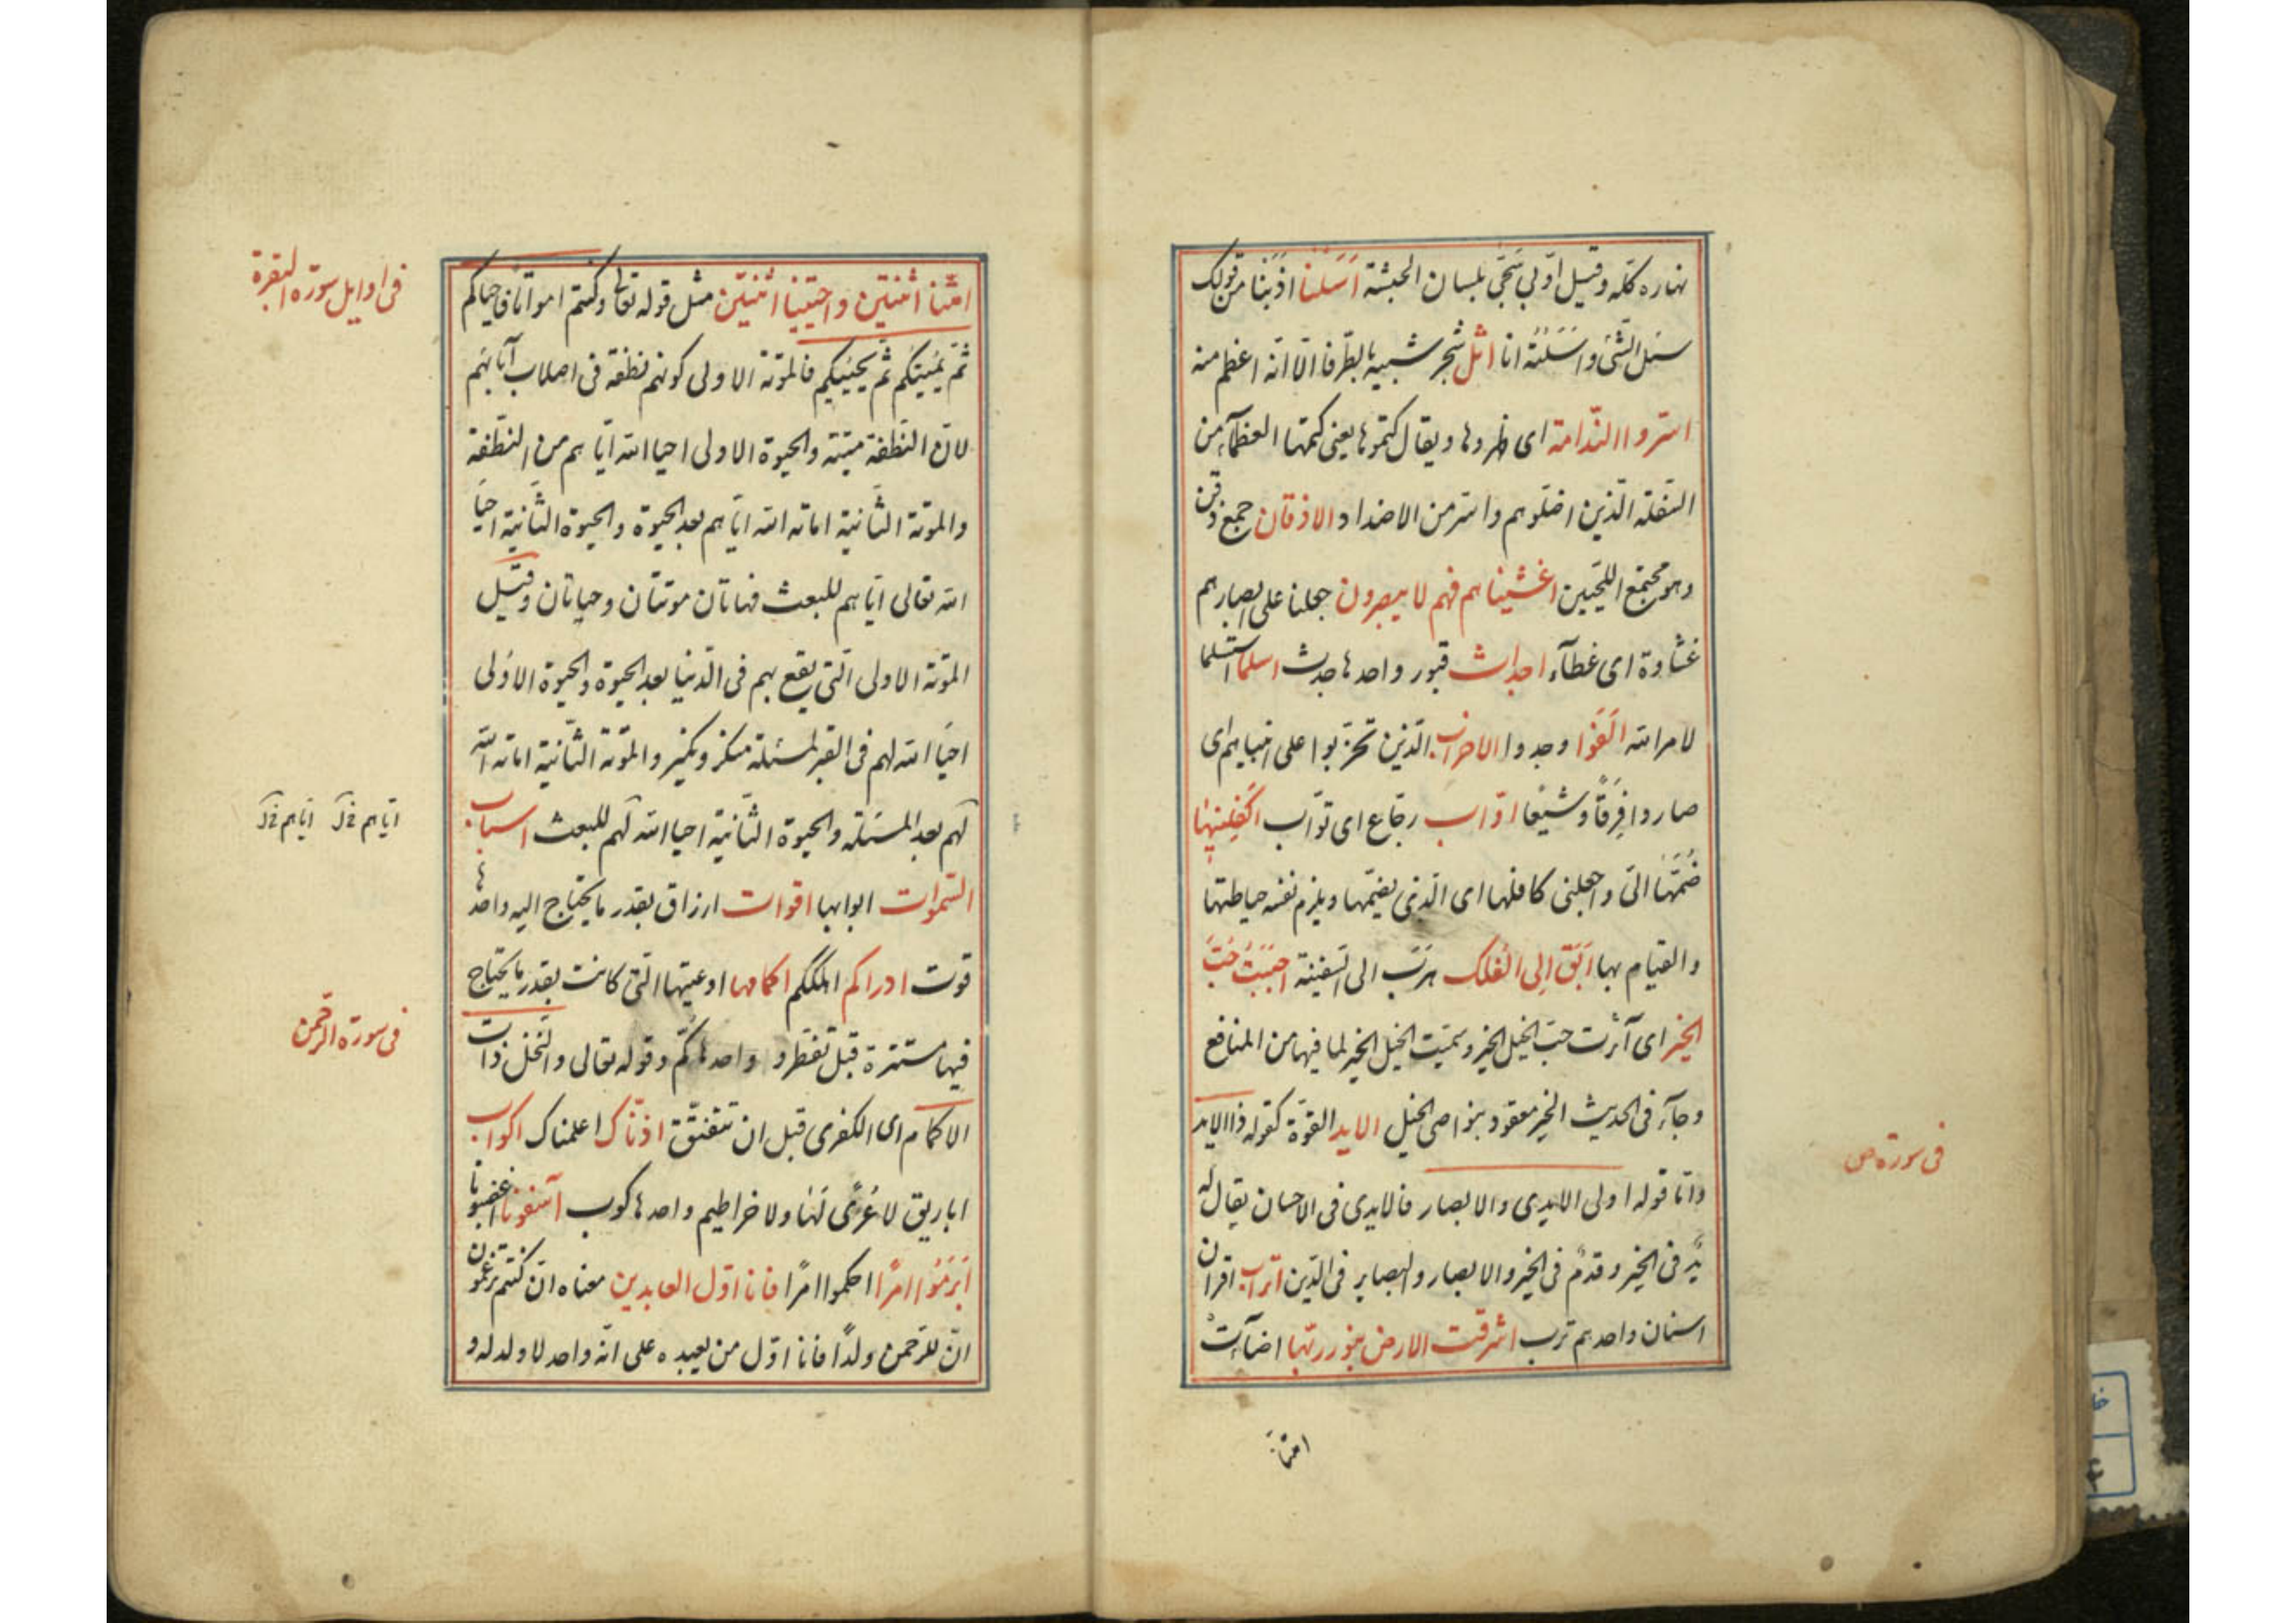 نهاره كلّه وقيل اوّبى سبّحى بلسان الحبشة اَسَلْنا اذبنا من قولك
سئل الشّئ واَسَلْتُه انا اثل شجر شبيه بالطّرفا الّا انّه اعظم منه
اسرّوا النّدامة اى ظهروها ويقال كتموها يعنى كتمها العظمآء من
السّفلة الّذين اضلّوهم واسرّ من الاضداد الاذقان جمع ذقن
وهو مجتمع اللّحيين اغشيناهم فهم لا يبصرون جعلنا على ابصارهم
غشاوة اى غطآء اجداث قبور واحدها جدث اسلما استسلما
لامر الله اَلْفَوْا وجدوا الاحزاب الّذين تحزّبوا على انبيايهم اى
صاروا فِرَقًا وشيعًا اوّاب رجّاع اى توّاب اَكْفِلْنيها
ضُمَّها الىّ واجعلنى كافلها اى الّذى يضمّها ويلزم نفسه حياطتها
والقيام بها اَبَقَ اِلى الفُلك هَرَبَ الى السّفينة احببت حُبَّ
الخير اى آثرت حبّ الخيل الخير وسمّيت الخيل الخير لما فيها من المنافع
وجآء فى الحديث الخير معقود بنواصى الخيل الايد القوّة كقوله ذا الايد
فى سورة ص
وامّا قوله اولى الايدى والابصار فالايدى فى الاحسان يقال له
يدٌ فى الخير وقدمٌ فى الخير والابصار والبصاير فى الدّين اتراب اقران
اسنان واحدهم ترب اشرقت الارض بنور ربّها اضآءت
امتّنا
امتّنا اثنتين واحييتنا اثنتين مثل قوله تعالى وكنتم امواتا فاحياكم
فى اوايل سورة البقرة
ثمّ يُميتكم ثمّ يحييكم فالموتة الاولى كونهم نطفة فى اصلاب آبايهم
لانّ النّطفة ميّتة والحيوة الاولى احيا الله ايّاهم من النّطفة
والموتة الثّانية اماته الله ايّاهم بعد الحيوة والحيوة الثّانية احيا
الله تعالى ايّاهم للبعث فهاتان موتتان وحياتان وقيل
الموتة الاولى الّتى يقع بهم فى الدّنيا بعد الحيوة والحيوة الاولى
احيا الله لهم فى القبر لمسئلة منكر ونكير والموتة الثّانية اماته الله
لهم بعد المسئلة والحيوة الثّانية احيا الله لهم للبعث اسباب
ايّاهم ايّاهم
السّموات ابوابها اقوات ارزاق بقدر ما يحتاج اليه واحدها
قوت ادراكم اهلككم اكمامها اوعيتها الّتى كانت بقدر ما يحتاج
فيها مستترة قبل تفطر واحدها كمّ وقوله تعالى والنّخل ذات
فى سورة الرّحمن
الاكمام اى الكفرى قبل ان تتفتّق اذنّاك اعلمناك اكواب
اباريق لا عُرًى لها ولا خراطيم واحدها كوب آسفونا اغضبونا
اَبْرَمُوا امرًا احكموا امرًا فانا اوّل العابدين معناه ان كنتم تزعمون
انّ للرّحمن ولدًا فانا اوّل من يعبده على انّه واحد لا ولد له و